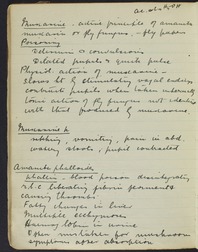 Muscarine - active principle of amanita
muscaria or fly fungus, - fly papers
Poisoning
Delirium & convulsions
Dilated pupils & quick pulse
Physiol. action of muscarine -
slows ht by stimulating vagal endings
contracts pupils when taken internally
Toxic action of fly fungus not identical
with that produced by muscarine.
Muscarine p.
retching, vomiting, pain in abd.
watery stools, pupil contracted
Amanita phalloides
phallin: blood poison disintegrating
r.b.c liberating fibrin ferments
causing thrombi
Fatty changes in liver
Multiple ecchymoses
Haemoglobin in urine
Often mistaken for mushroom
symptoms after absorption